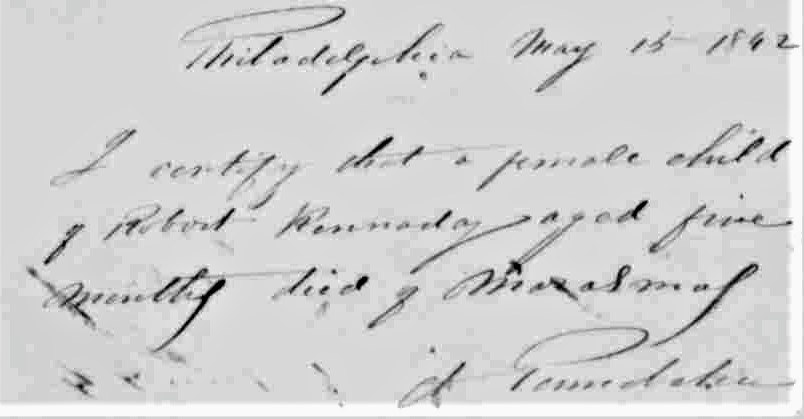 Philadelphia May 15 1842
I certify that a female child
of Robert Kennaday aged five
months died of Marasmas